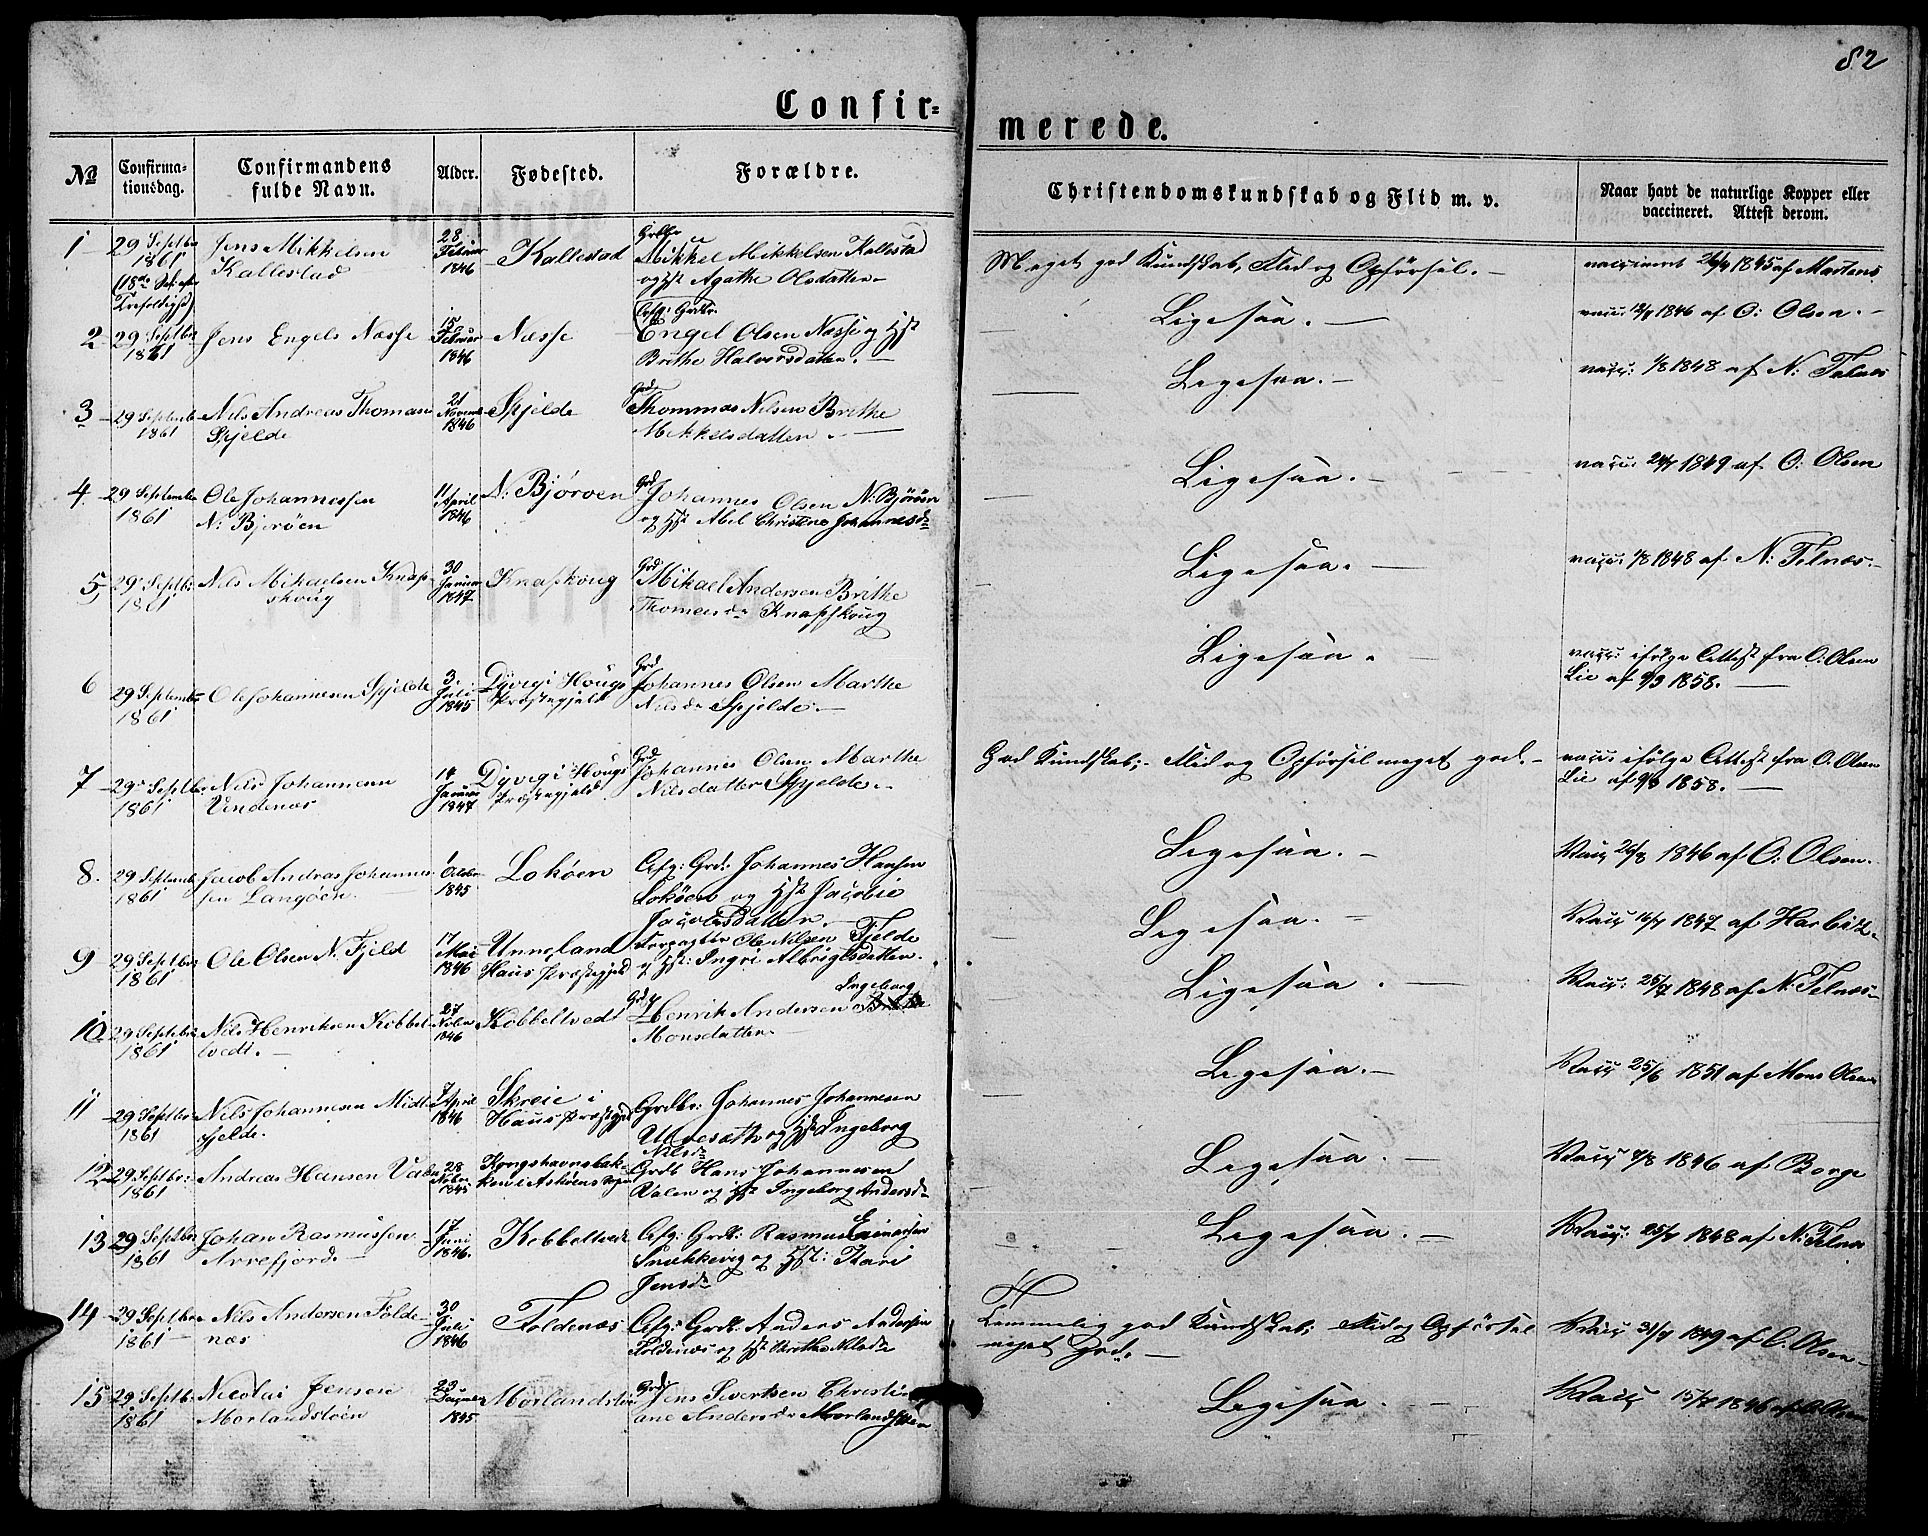 82
Confir=
merede.
№
Confirma-
tionsdag.
Confirmandens
fulde Navn.
Alder.
Fødested.
Forældre.
Christendomskundskab og Flid m. v.
Naar havt de naturlige Kopper eller
vaccineret. Attest derom.
1
29 Septbr
1861
(18de Sd. efter
Trefoldigh)
Jens Mikkelsen
Kallestad
28
Februar
1846
Kallestad
Grdbr
Mikkel Mikkelsen Kallestad
og Hst Agathe Olsdatter
Meget god Kundskab, Flid og Opførsel. -
vaccineret 1845 af Martens
2
29 Septbr
1861
Jens Engels Næsse
15
Februar
1846
Næsse
Afg: Grdbr.
Engel Olsen Næsse og Hst
Brithe Halvorsdatter. -
Ligesaa. -
vacc: 1846 af O: Olsen. -
3
29 Septemb
1861
Nils Andreas Thomasen
Skjelde
21
Novemb
1846
Skjelde
Grd
Thommas Nilsen Brithe
Mikkelsdatter. -
Ligesaa. -
vacc: 1/8 1848 af N: Telnæs
4
29 September
1861
Ole Johannessen
N: Bjørøen
11
April
1846
N: Bjørøen
Grd
Johannes Olsen N: Bjørøen
og Hst Abel Christine Johannesd
Ligesaa. -
vacc: 1849 af O: Olsen
5
29 Septbr
1861
Nils Mikaelsen Knap-
skoug
30
Januar
1847
Knapskoug
Grd
Mikael Andersen Brithe
Thomesdr Knapskoug
Ligesaa. -
vacc: 1848 af N: Telnæs. -
6
29 September
1861
Ole Johannesen Skjelde
3.
Juli
1845
Dyvig i Hougs
Præstegjeld
Grd
Johannes Olsen Marthe
Nilsdr Skjelde. -
Ligesaa. -
vacc: ifølge Attest fra O: Olsen
Lie af 9/3 1858. -
7
29 Septbr
1861
Nils Johannesen
Vindenæs
14
Januar
1847
Dyvig i Hougs
Præstegjeld
Grd
Johannes Olsen Marthe
Nilsdatter Skjelde. -
God Kundskab; - Flid og Opførsel meget god. -
vacc: ifølge Attest fra O. Olsen
Lie af 9/3 1858. -
8.
29 Septemb
1861
Jacob Andreas Johannes-
sen Langøen
1
October
1845
Lokøen
Afg: Grd: Johannes Hansen
Lokøen og Hst Jacobie
Jacobsdatter. -
Ligesaa. -
Vacc 26/8 1846 af O. Olsen.
9
29 Septbr
1861
Ole Olsen N. Fjeld
17
Mai
1846
Unneland
Haus Præstegjeld
Forpagter Ole Nilsen Fjelde
og Hst: Ingri Albrigtsdatter.
Ligesaa. -
Vacc 1847 af Harbitz.
10
29 Septbr
1861
Nils Henriksen Kobbel-
tvedt. -
27
Nvbr
1846
Kobbeltvedt
Grd
Ingeborg
Henrik Andersen
Monsdatter
Ligesaa. -
Vacc: 25/7 1848 af N. Telnæs
11
29 Septbr
1861
Nils Johannesen Midt-
skjelde.
7 April
1846
Skreie i
Haus Præstegjeld
Grdbr: Johannes Johannesen
Ulvesæth og Hst Ingeborg
Nilsdr
Ligesaa. -
Vacc 25/6 1851 af Mons Olsen
12
29 Septbr:
1861
Andreas Hansen Valen
28
Nvbr
1845
Kongshavnsbak-
ken i Askøens Sogn
Grdb Hans Johannesen
Valen og Hst Ingeborg Andersdr
Ligesaa. -
Vacc 1846 af Borge
13
29 Septbr
1861
Johan Rasmussen
Arrefjord
17
Juni
1846.
Kobbeltvedt
Afg: Grdb: Rasmus Einersen
Snekkevig og Hst: Kari
Jensdr
Ligesaa. -
Vacc: 25/7 1848 af N: Telnæs
14
29 Septbr
1861
Nils Andersen Folde-
næs
30
Juli
1846
Foldenæs
Afg: Grdb: Anders Andersen
Foldenæs og Hst Brithe Nilsdr
Temmelig god Kundskab; Flid og Opførsel
meget God. -
Vacc 31/7 1849 af O. Olsen
15
29 Septbr
1861
Nicolai Jensen
Morlandstøen
23
Decmber
1845
Morlandstøen
Grd
Jens Sivertsen Christi-
ane Andersdr Morlandstøen
Ligesaa. -
Vacc 1846 af O Olsen